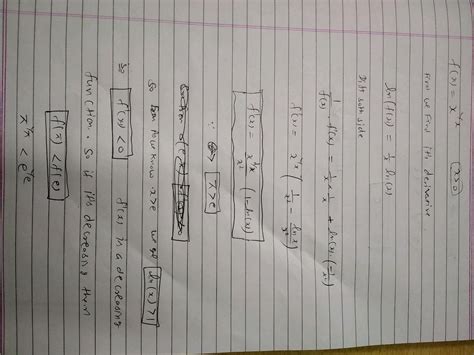 f(x) = x^{1/x}   (x>0)
now we find its derivative
ln(f(x)) = 1/x ln(x)
Diff both side
1/f(x) · f'(x) = 1/x × 1/x + ln(x) (-1/x²)
f'(x) = x^{1/x} (1/x² - ln x/x²)
f'(x) = x^{1/x}/x² (1-ln(x))
∵ x>e
so now know x>e we get ln(x)>1
so f'(x)<0 f(x) is a decreasing
function. So if its decreasing then
f(x) < f(e)
x^{1/x} < e^{1/e}